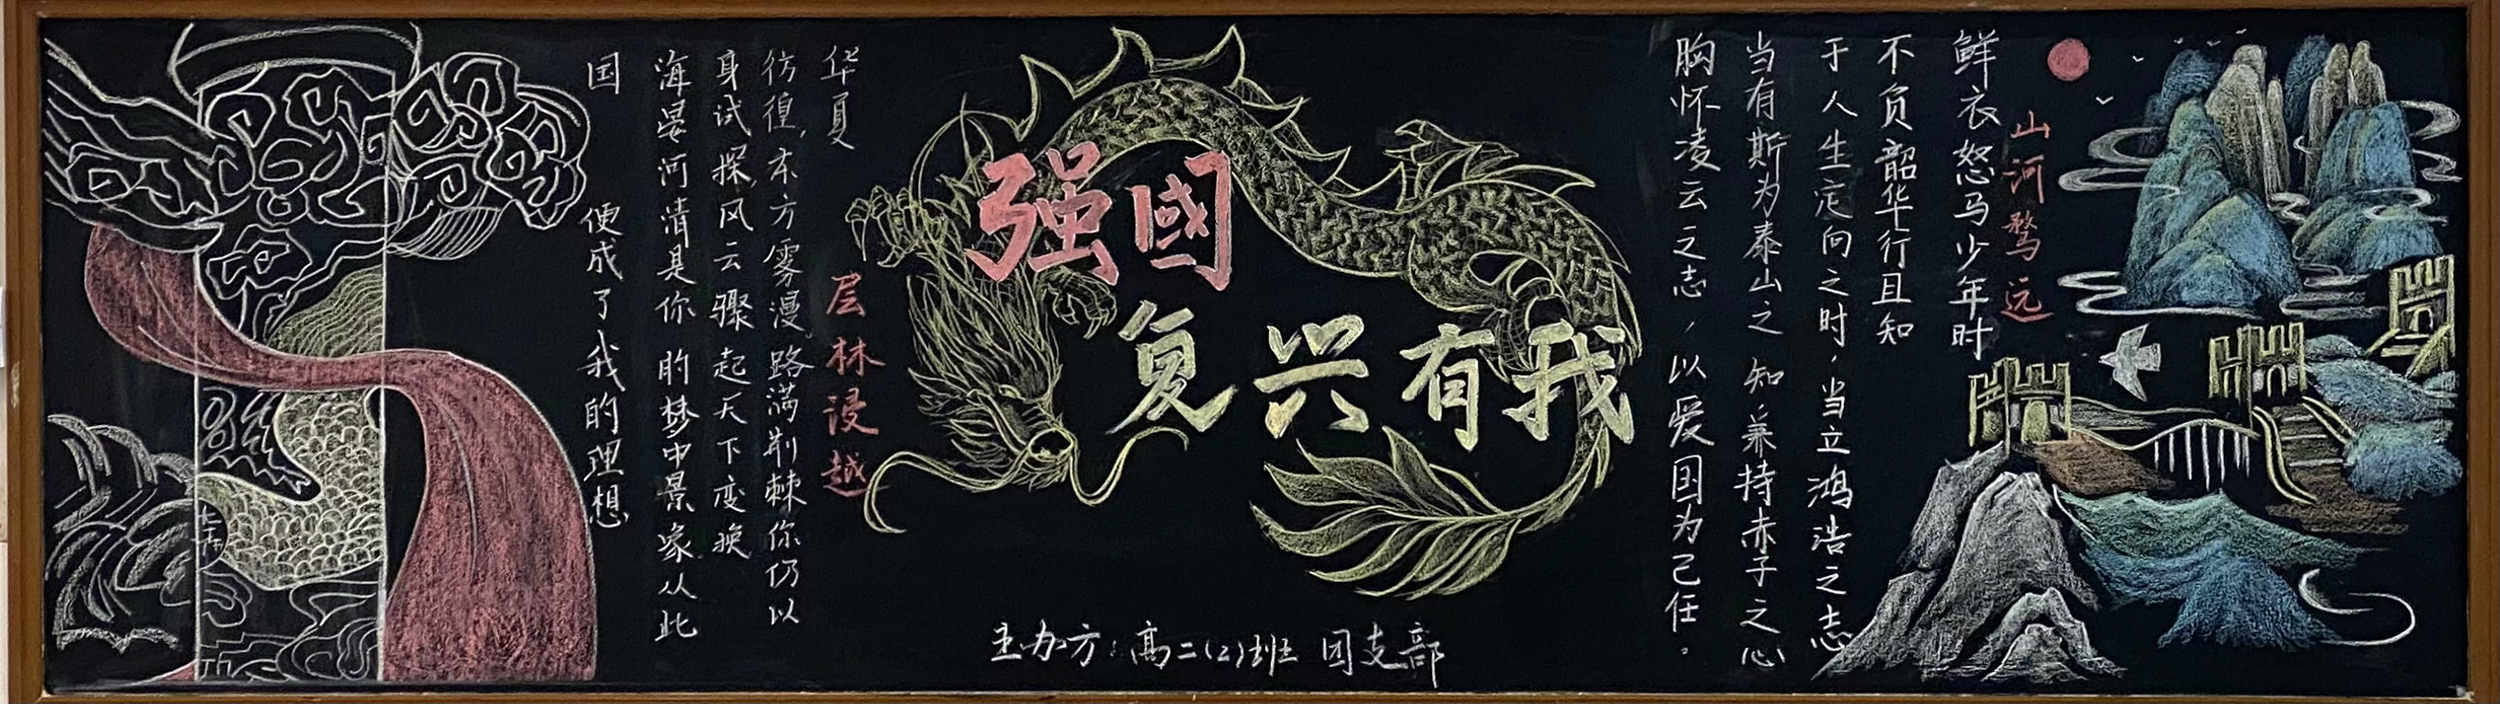 山河骛远
鲜衣怒马少年时
不负韶华行且知
于人生定向之时，当立鸿浩之志
当有斯为泰山之知 兼持赤子之心
胸怀凌云之志，以爱国为己任。
强國
复兴有我
主办方：高二(2)班 团支部
华夏
层林浸越
彷徨，东方雾漫。路满荆棘你仍以
身试探，风云骤起天下变换
海晏河清是你的梦中景象从此
国 便成了我的理想